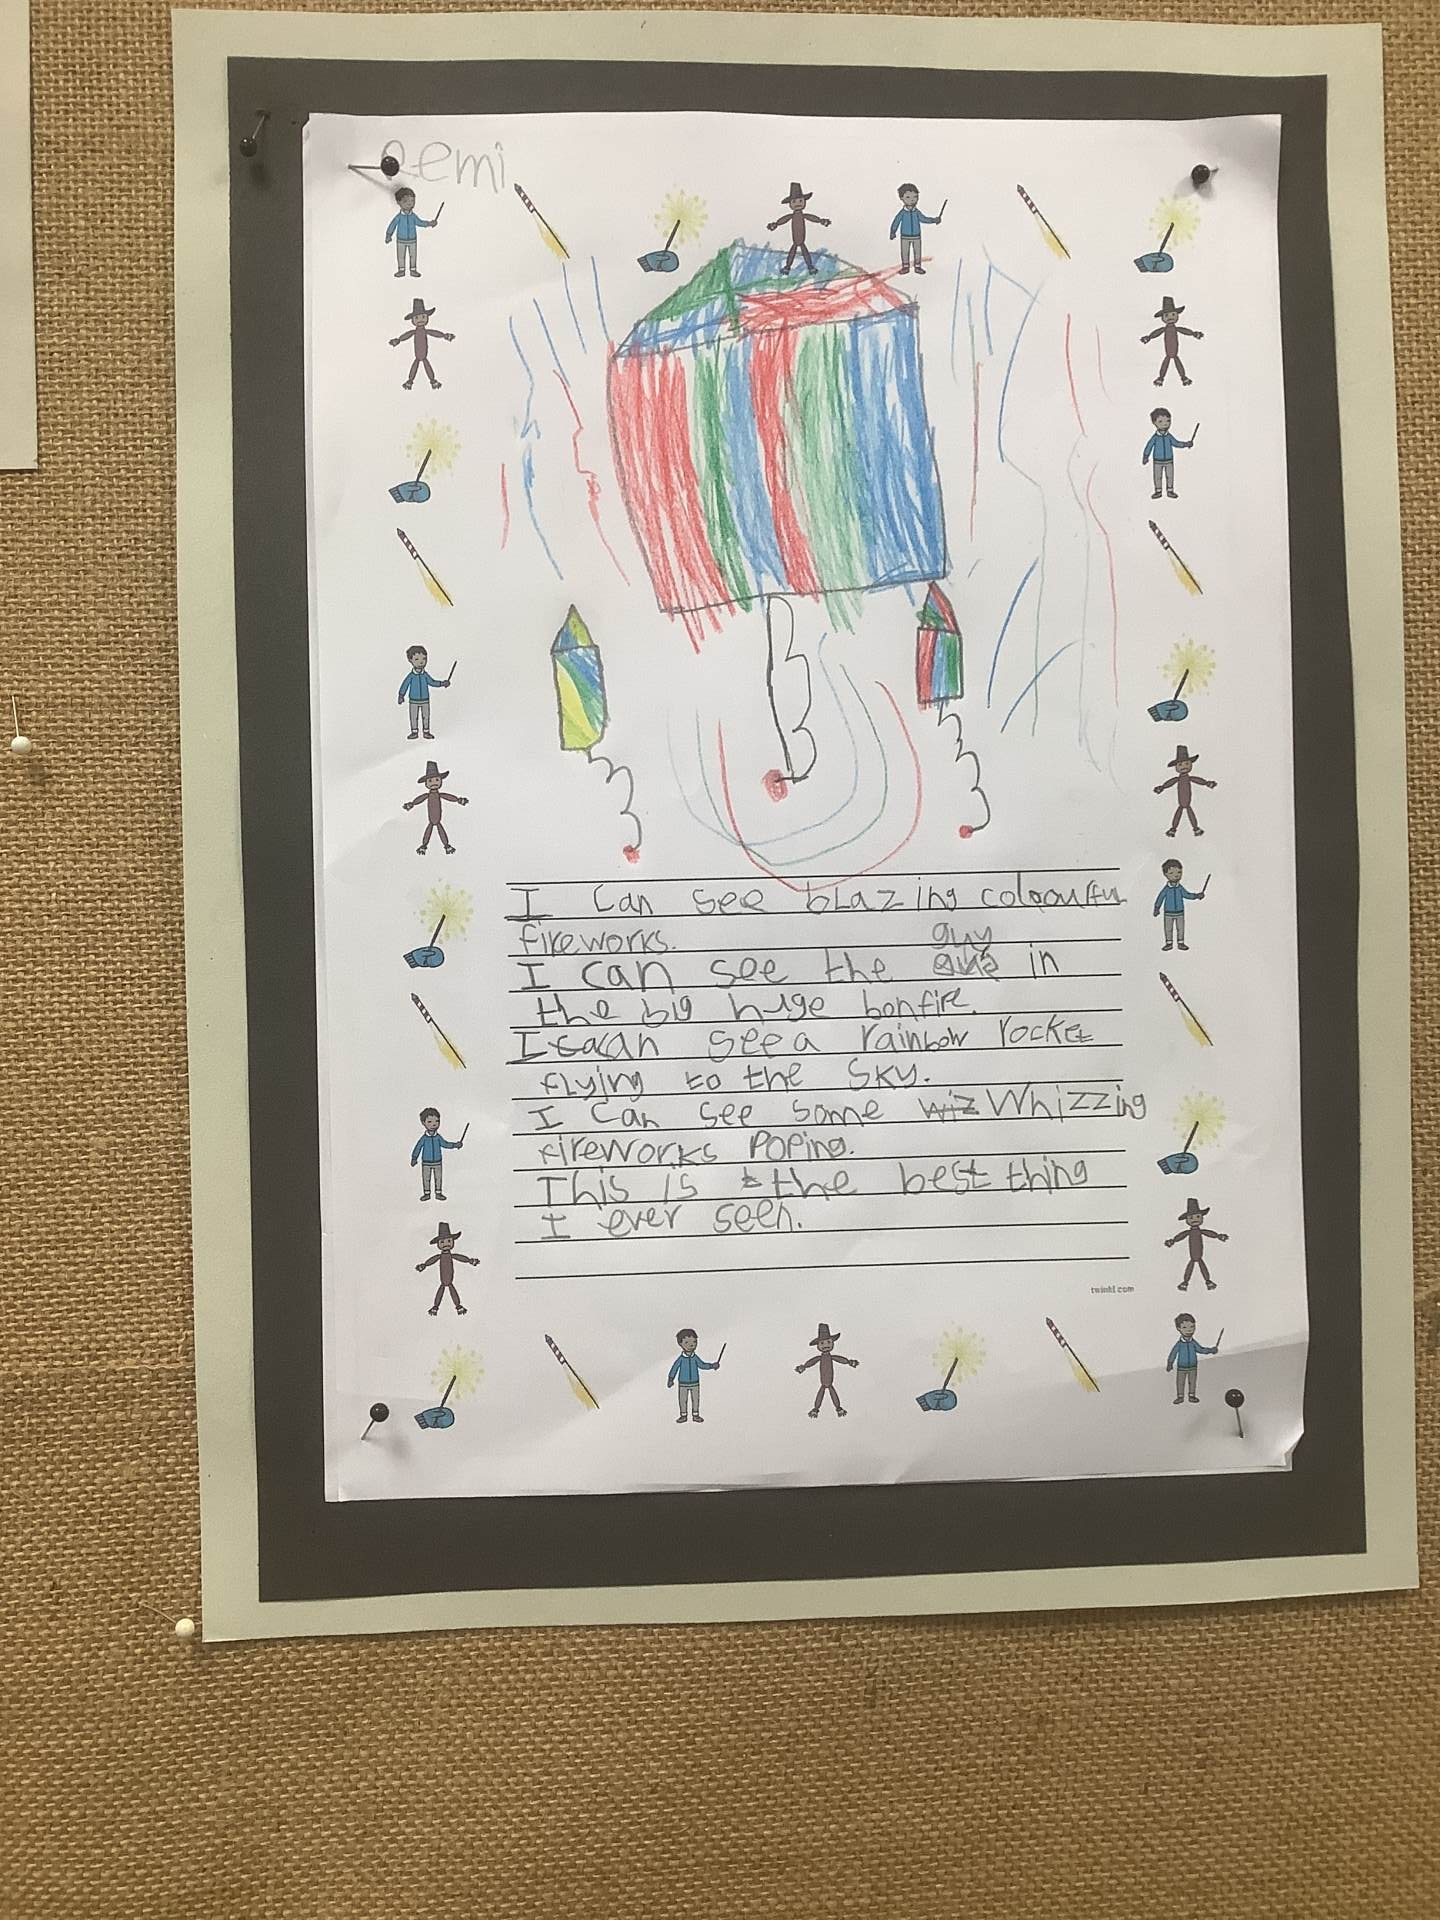 Remi
I can see blazing colourful
fireworks.
guy
I can see the in
the big huge bonfire.
I can see a rainbow rocket
flying to the sky.
I can see some wiz Whizzing
fireworks Poping.
This is the best thing
I ever seen.
twinkl.com